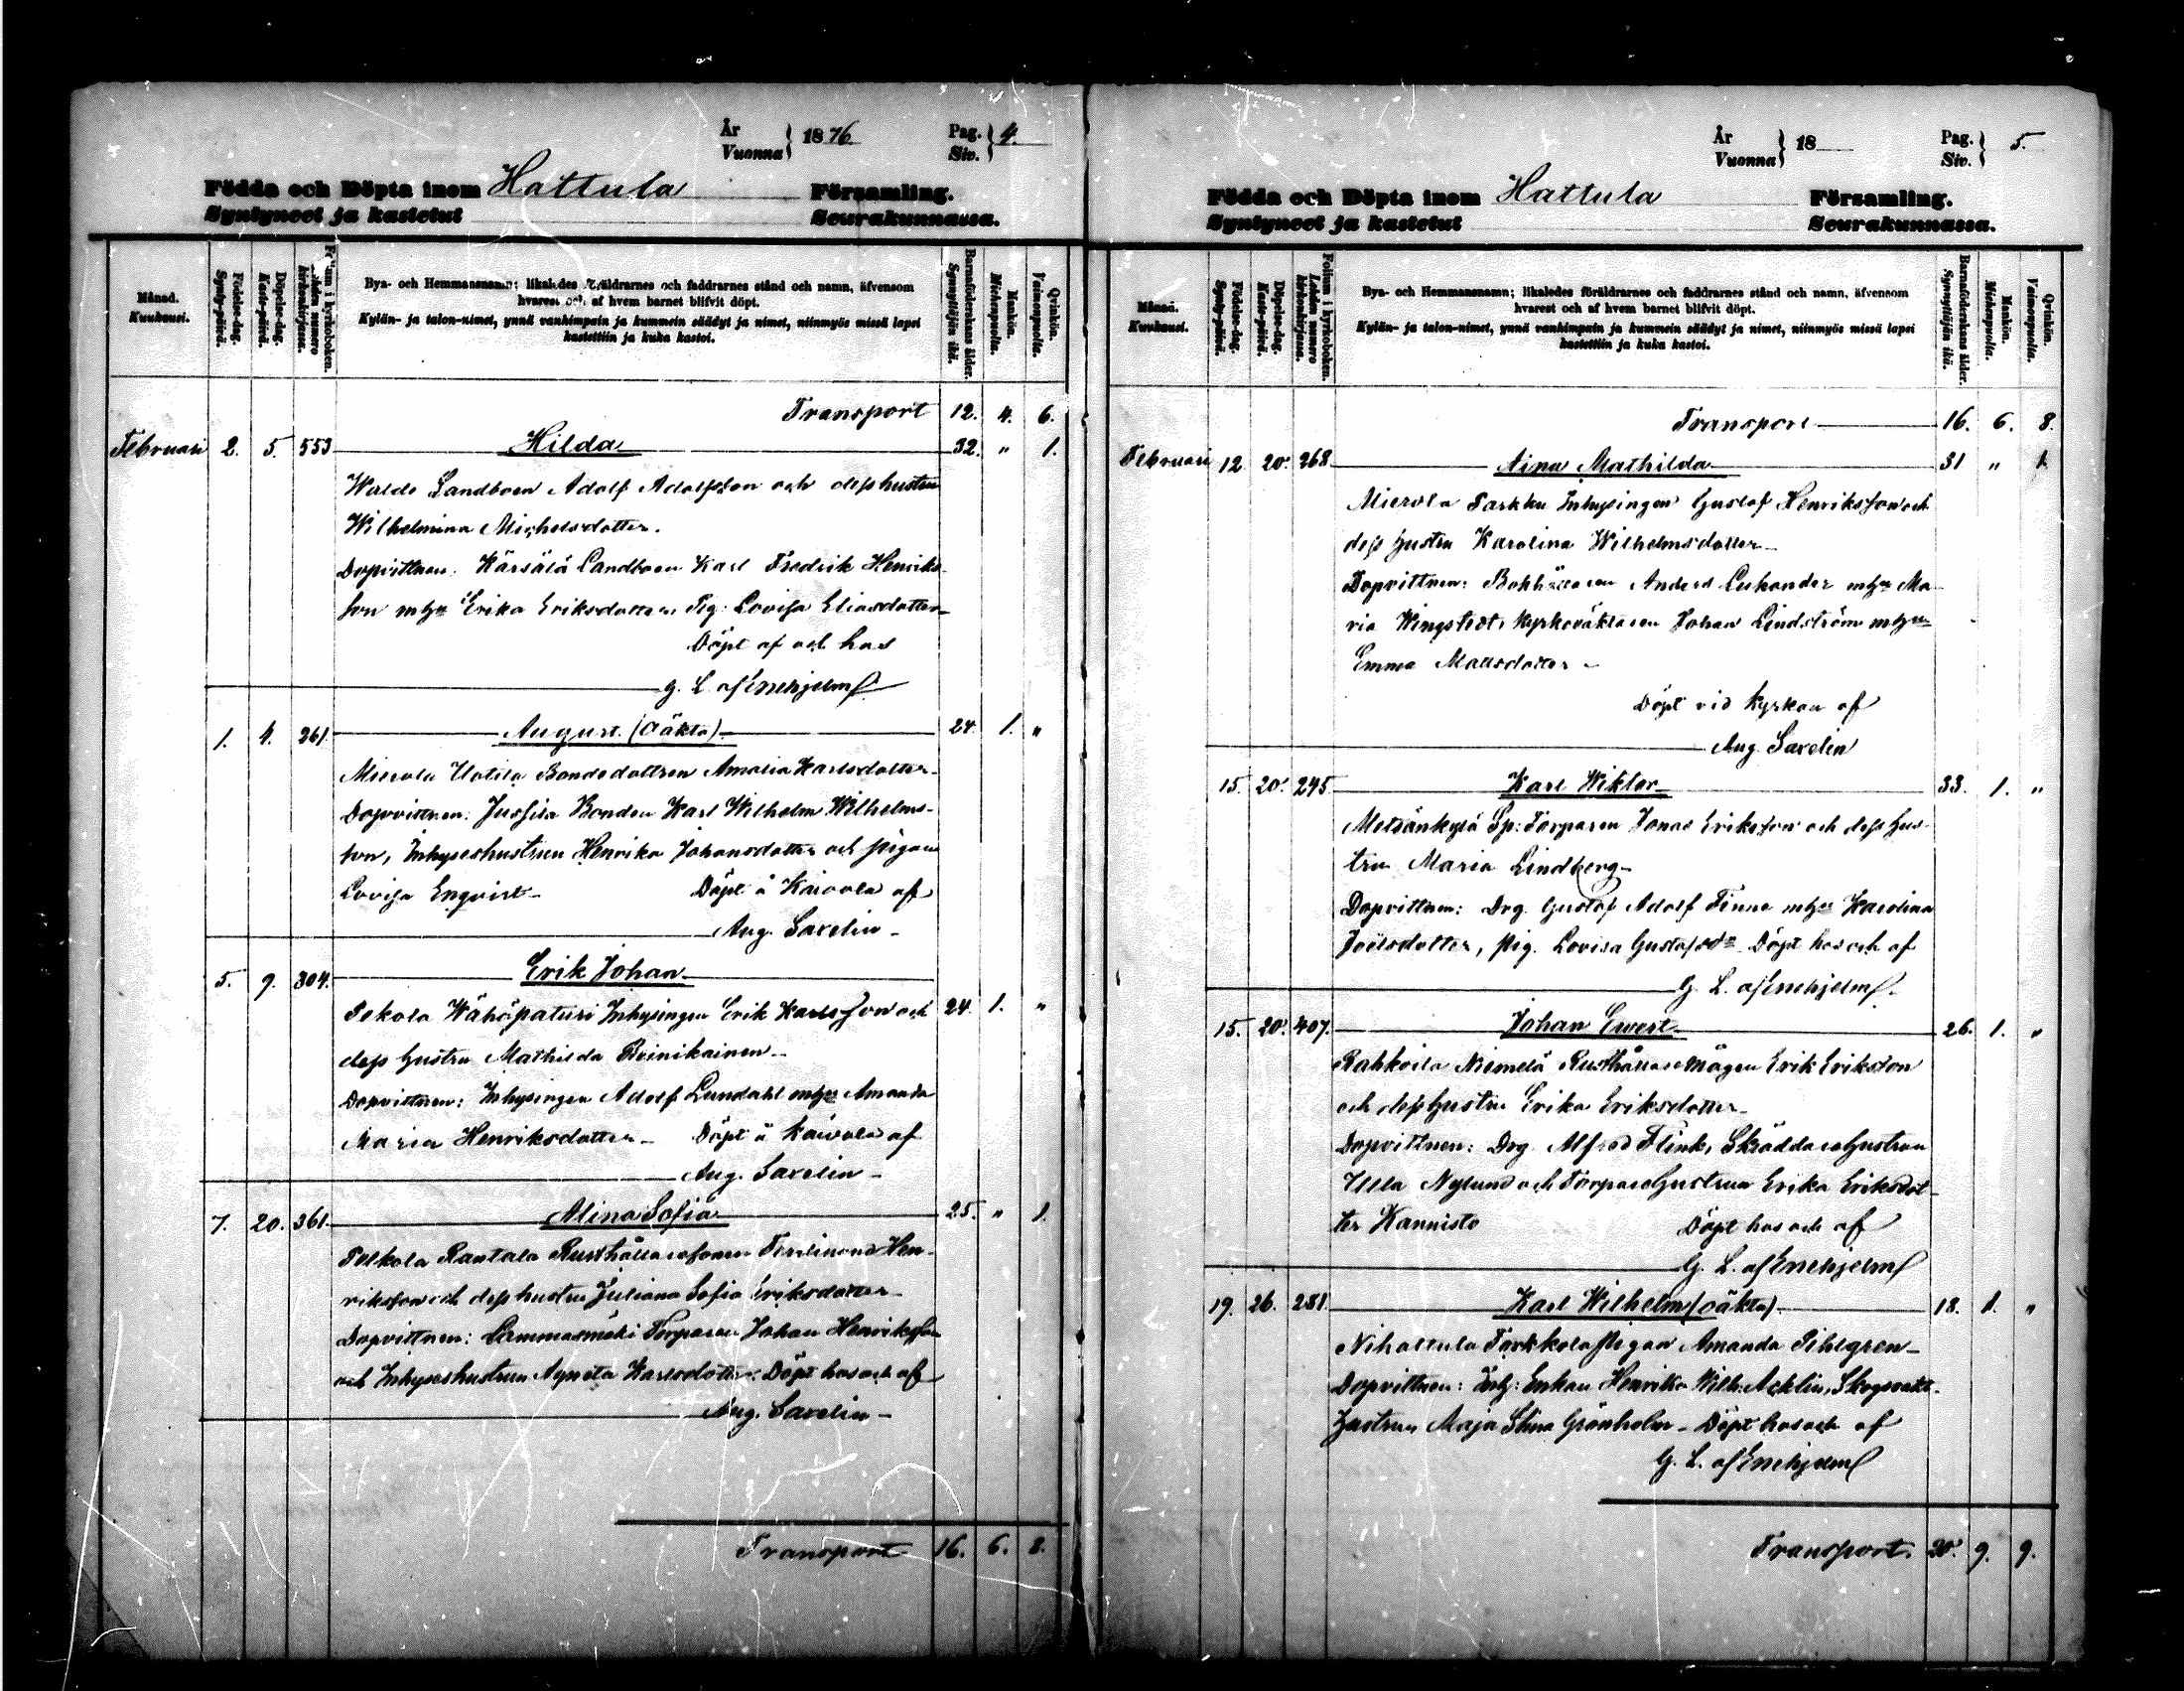 År
Vuonna } 1876. Pag. Siv. } 4.
Födda och Döpta inom Hattula Församling.
Syntyneet ja kastetut Seurakunnassa.
Månad. Kuukausi.
Födelse-dag. Synty-päivä.
Döpelse-dag. Kaste-päivä.
Folium i kyrkoboken. Lehden numero kirkonkirjassa.
Bya- och Hemmansnamn; likaledes föräldrarnes och faddrarnes stånd och namn, äfvensom
hvarest och af hvem barnet blifvit döpt.
Kylän- ja talon-nimet, ynnä vanhimpain ja kummein säädyt ja nimet, niinmyös missä lapsi
kastettiin ja kuka kastoi.
Barnaföderskans ålder. Synnyttäjän ikä.
Mankön. Miehenpuolta.
Qvinkön. Vaimonpuolta.
Transport 12. 4. 6.
Februari 2. 5. 553 Hilda 32. " 1.
Landboen Adolf Adolfsson och dess hustru
Wilhelmina Michelsdotter.
Dopvittnen: Kärsälä Landboen Karl Fredrik Henriks-
son m hu Erika Eriksdotter Pig: Lovisa Eliasdotter
Döpt af och hos
G. L. af Enehjelm
1. 4. 261. August. (Oäkta) 24. 1. "
Mierola Uotila Bondedottren Amalia Karlsdotter
Dopvittnen: Jussila Bonden Karl Wilhelm Wilhelms-
son, Inhyseshustrun Henrika Johansdotter och pigan
Lovisa Enqvist Döpt å Kaivola af
Aug. Saxelin
5. 9. 304. Erik Johan
Pekola Wähäpaturi Inhysingen Erik Karlsson och 24. 1. "
dess hustru Mathilda Reinikainen
Dopvittnen: Inhysingen Adolf Lundahl m hu Amanda
Maria Henriksdotter Döpt å Kaivola af
Aug. Saxelin
7. 20. 361. Alina Sofia 25. " 1.
Pelkola Rantala Rusthållaresonen Ferdinand Hen-
riksson och dess hustru Juliana Sofia Eriksdotter
Dopvittnen: Lammasmäki Torparen Johan Henriksson
och Inhyseshustrun Agneta Karlsdotter Döpt hos och af
Aug. Saxelin
Transport 16. 6. 8.
År
Vuonna } 18 Pag. Siv. } 5.
Födda och Döpta inom Hattula Församling.
Syntyneet ja kastetut Seurakunnassa.
Månad. Kuukausi.
Födelse-dag. Synty-päivä.
Döpelse-dag. Kaste-päivä.
Folium i kyrkoboken. Lehden numero kirkonkirjassa.
Bya- och Hemmansnamn; likaledes föräldrarnes och faddrarnes stånd och namn, äfvensom
hvarest och af hvem barnet blifvit döpt.
Kylän- ja talon-nimet, ynnä vanhimpain ja kummein säädyt ja nimet, niinmyös missä lapsi
kastettiin ja kuka kastoi.
Barnaföderskans ålder. Synnyttäjän ikä.
Mankön. Miehenpuolta.
Qvinkön. Vaimonpuolta.
Transport 16. 6. 8.
Februari 12 20. 268. Aina Mathilda 31 " 1
Mierola Parkku Inhysingen Gustaf Henriksson och
dess hustru Karolina Wilhelmsdotter
Dopvittnen: Bokhållaren Anders Lukander m hu Ma-
ria Wingstedt, Kyrkoväktaren Johan Lindström m hu
Emma Mattsdotter
Döpt vid kyrkan af
Aug. Saxelin
15. 20. 295. Karl Wiktor 33. 1. "
Metsänkylä Sp: Torparen Jonas Eriksson och dess hus-
tru Maria Lindberg
Dopvittnen: Drg. Gustaf Adolf Finne m hu Karolina
Joelsdotter, pig. Lovisa Gustafsdr Döpt hos och af
G. L. af Enehjelm
15. 20. 407. Johan Evert 26. 1. "
Rahkoila Niemelä Rusthållaremågen Erik Eriksson
och dess hustru Erika Eriksdotter
Dopvittnen: Drg. Alfred Flink, Skräddarehustrun
Ulla Nylund och Torparehustrun Erika Eriksdot-
ter Kannisto Döpt hos och af
G. L. af Enehjelm
19. 26. 281. Karl Wilhelm (oäkta) 18. 1. "
Nihattula Parkkola pigan Amanda Pihlgren
Dopvittnen: Inh: Enkan Henrika Wilh. Acklin, Skogsvakt-
hustrun Maja Stina Grönholm Döpt hos och af
G. L. af Enehjelm
Transport. 20. 9. 9.